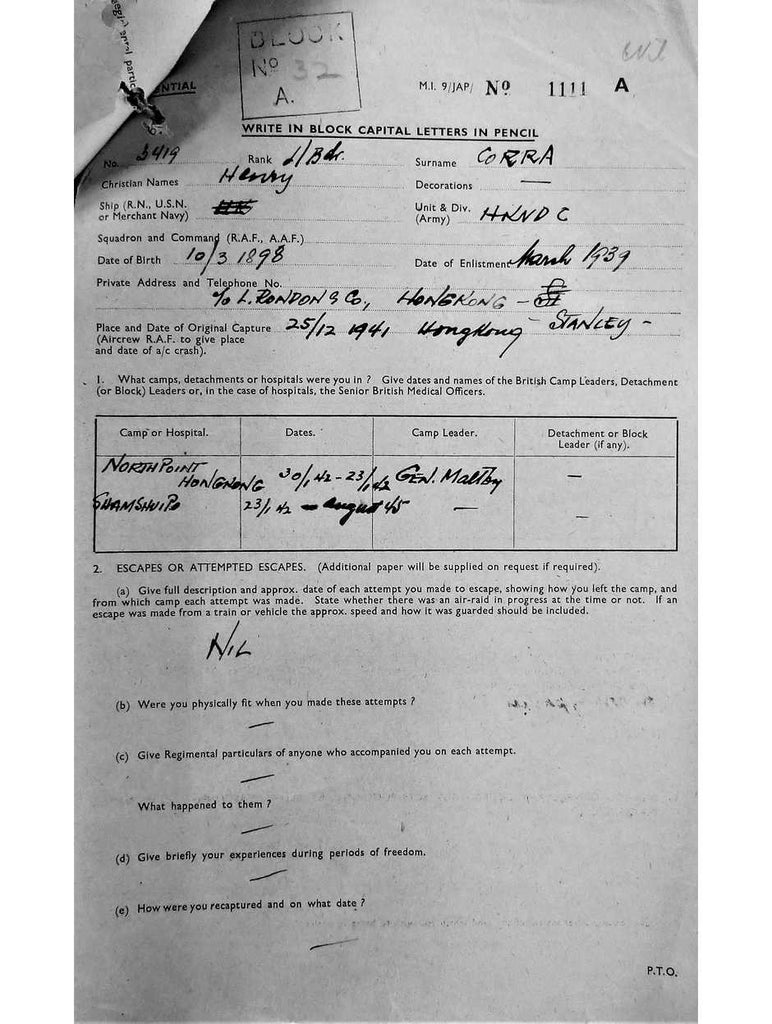 NTIAL
BLOCK
Nº 32
A.
M.I. 9/JAP/ Nº 1111 A
WRITE IN BLOCK CAPITAL LETTERS IN PENCIL
No. 3419 Rank L/Bdr. Surname CORRA
Christian Names Henry Decorations —
Ship (R.N., U.S.N. or Merchant Navy)
Unit & Div. (Army) HKVDC
Squadron and Command (R.A.F., A.A.F.)
Date of Birth 10/3 1898 Date of Enlistment March 1939
Private Address and Telephone No.
c/o L. RONDON & Co., HONGKONG –
Place and Date of Original Capture 25/12 1941 Hongkong – STANLEY –
(Aircrew R.A.F. to give place
and date of a/c crash).
1. What camps, detachments or hospitals were you in ? Give dates and names of the British Camp Leaders, Detachment
(or Block) Leaders or, in the case of hospitals, the Senior British Medical Officers.
Camp or Hospital. Dates. Camp Leader. Detachment or Block
Leader (if any).
NORTH POINT
HONGKONG 30/1 42 – 23/1 42 GEN. Maltby —
SHAMSHUIPO 23/1 42 — August 45 — —
2. ESCAPES OR ATTEMPTED ESCAPES. (Additional paper will be supplied on request if required).
(a) Give full description and approx. date of each attempt you made to escape, showing how you left the camp, and
from which camp each attempt was made. State whether there was an air-raid in progress at the time or not. If an
escape was made from a train or vehicle the approx. speed and how it was guarded should be included.
NIL
(b) Were you physically fit when you made these attempts ?
—
(c) Give Regimental particulars of anyone who accompanied you on each attempt.
—
What happened to them ?
—
(d) Give briefly your experiences during periods of freedom.
—
(e) How were you recaptured and on what date ?
—
P.T.O.